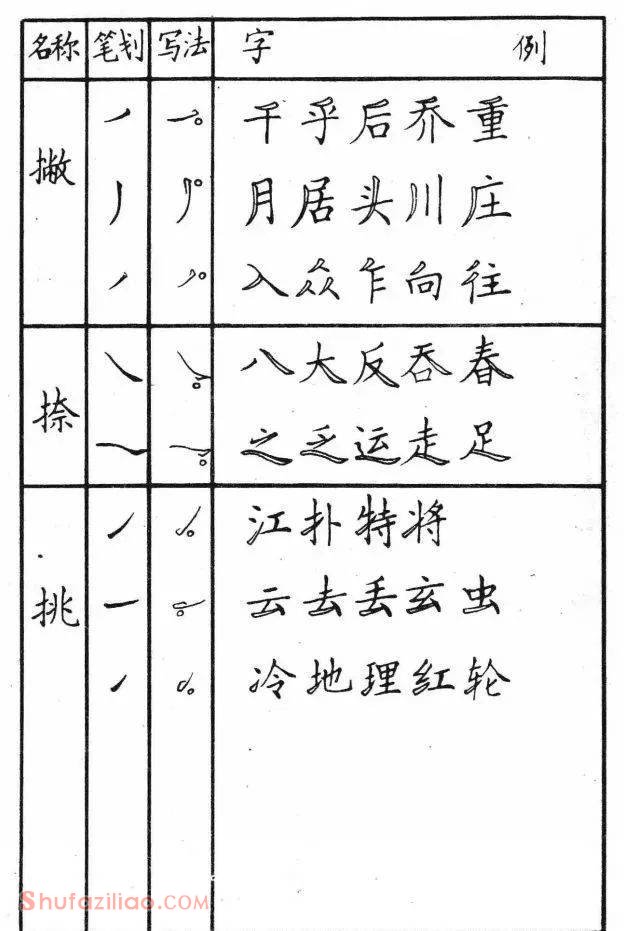 名称 笔划 写法 字 例
撇
千乎后乔重
月居头川庄
入众乍向往
捺
八大反吞春
之乏运走足
挑
江扑特将
云去丢玄虫
冷地理红轮
Shufaziliao.COM